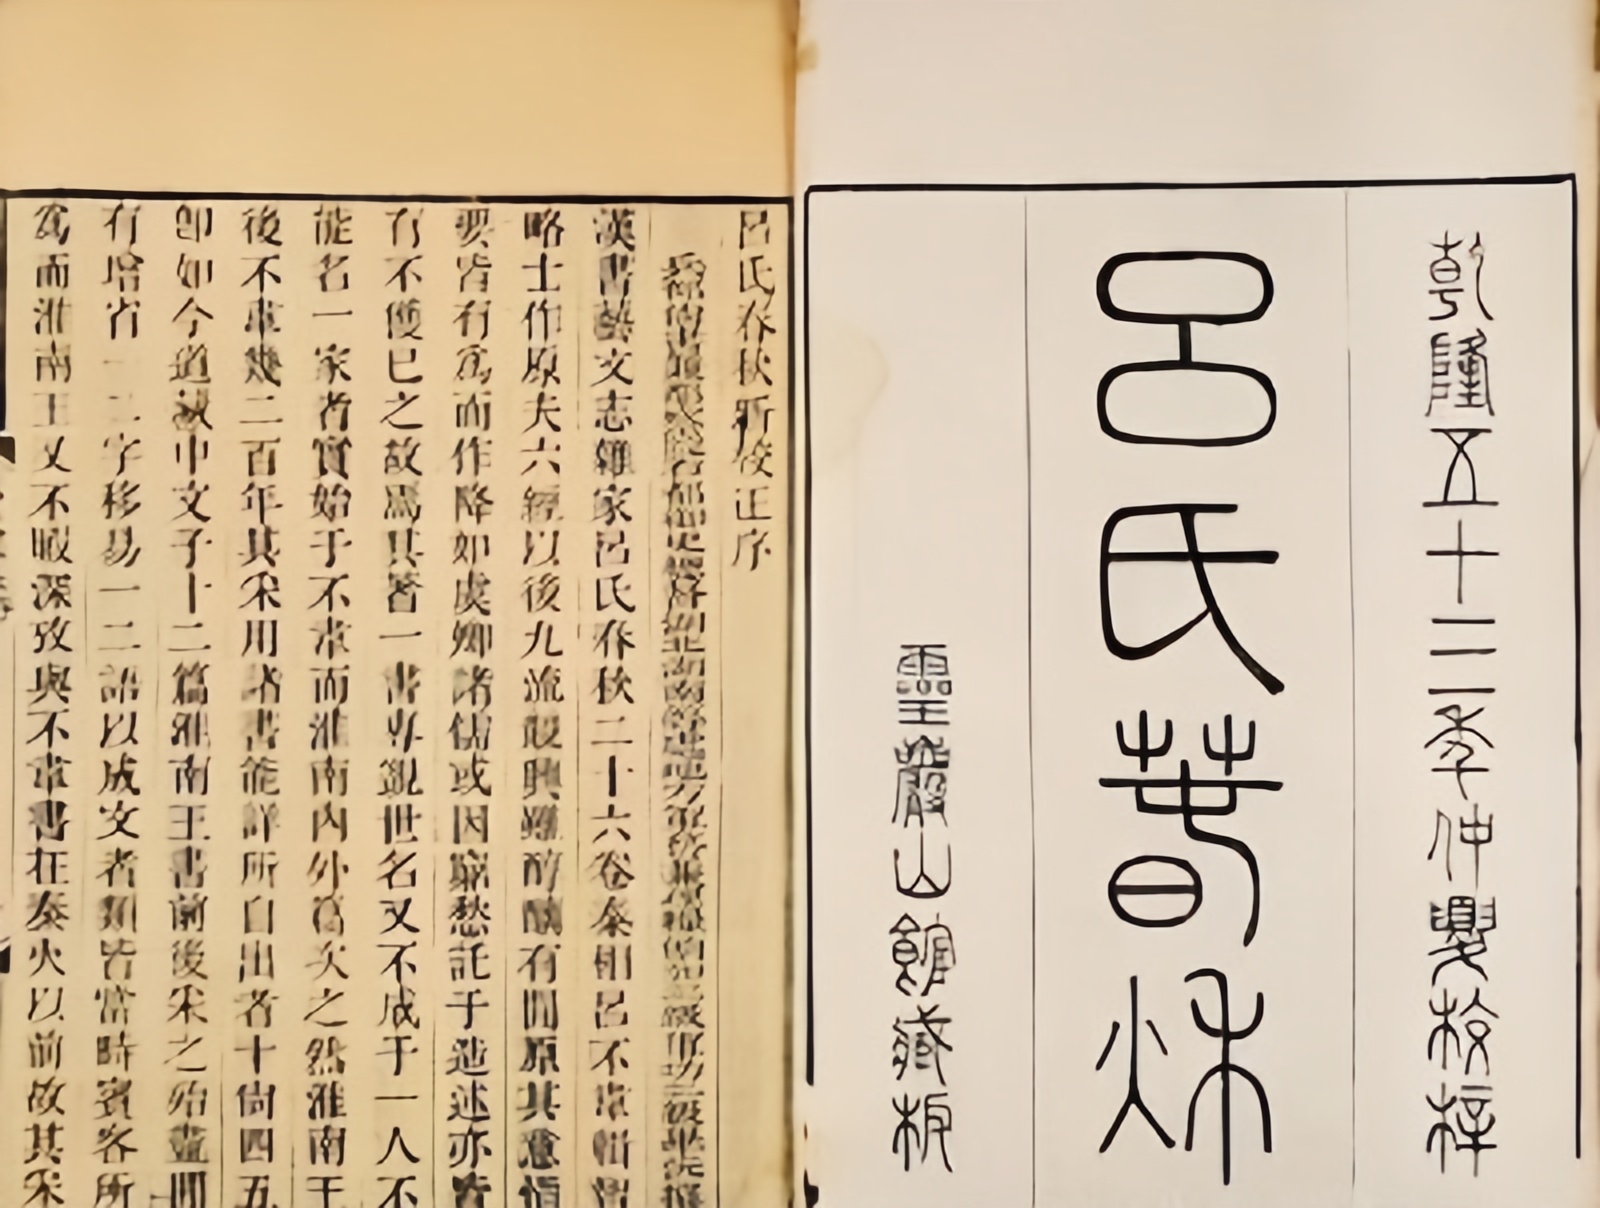 乾隆五十三年仲夏校梓
呂氏春秋
靈巖山館藏板
呂氏春秋新校正序
漢書藝文志雜家呂氏春秋二十六卷秦相呂不韋輯智
略士作原夫六經以後九流競興雖醇醨有間原其意恉
要皆有爲而作降如虞卿諸儒或因窮愁託于造述亦皆
有不獲已之故焉其著一書專覬世名又不成于一人不
能名一家者實始于不韋而淮南內外篇次之然淮南王
後不韋幾二百年其采用諸書能詳所自出者十尙四五
卽如今道藏中文子十二篇淮南王書前後采之殆盡間
有增省一二字移易一二語以成文者類皆當時賓客所
爲而淮南王又不暇深攷與不韋書在秦火以前故其采